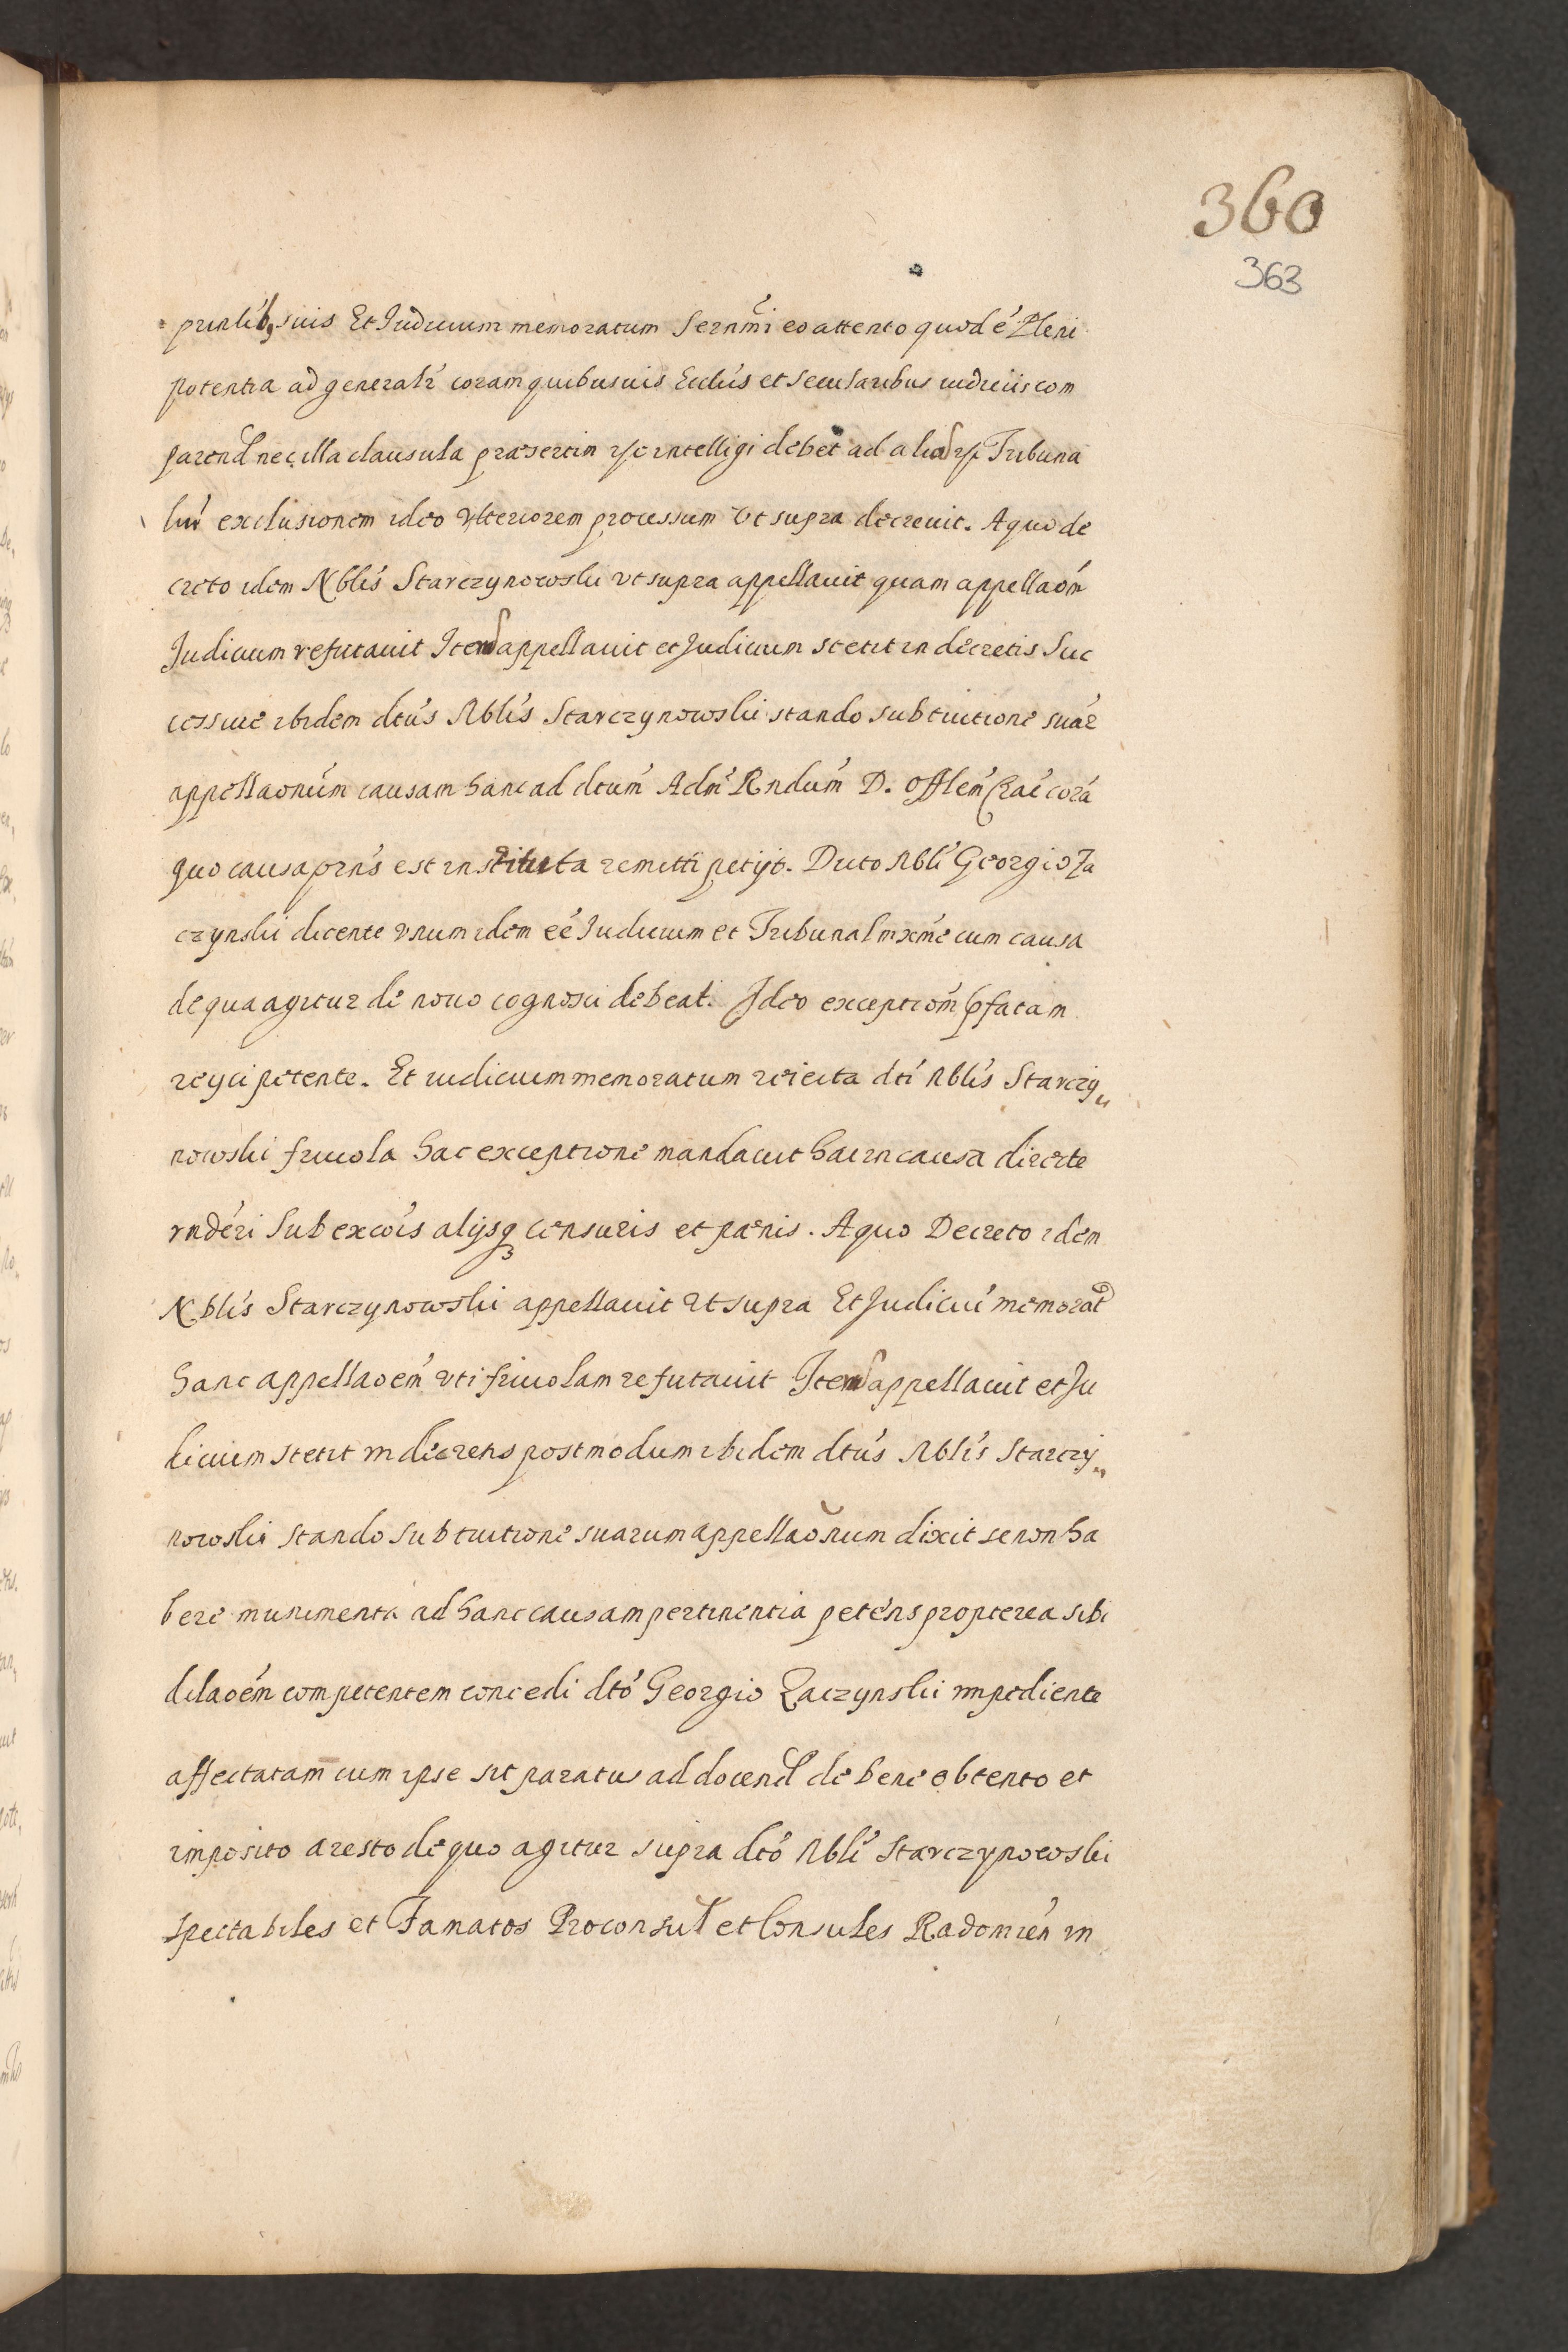 360
363
prntib9 suis Et Iudicium memoratum Sernmi eo attento quod é Pleni
potentia ad generalr coram quibusuis Ecclis et secularibus iudiciis com
parend nec illa clausula praesertim rsc intelligi debet ad aliarr Tribuna
liu exclusionem ideo vlteriorem processum vt supra decreuit. A quo de
creto idem Nblis Starczynowski vt supra appellauit quam appellaom
Judicium refutauit Iterum appellauit et Judicium stetit in decretis Suc
cessiue ibidem dtus Nblis Starczynowski stando sub tuitione suar
appellaonum causam hanc ad dtum Adm Rndum D. Offlem Grae corá
quo causa prius est instituta remitti petijt. Dicto Nbli Georgio Za
czynski dicente vnum idem eé Iudicium et Tribunal mxme cum causa
de qua agitur de nouo cognosci debeat. Ideo exceptiom pfatam
reyci petente. Et iudicium memoratum reiecta dti Nblis Starczy„
nowski friuola hac exceptione mandauit hac in causa directe
rnderi sub excois alijsq3 censuris et paenis. A quo Decreto idem
Nblis Starczynowski appellauit vt supra Et Judiciu memorat
hanc appellaoem vti friuolam refutauit Iterum appellauit et Ju
dicium stetit in decretis postmodum ibidem dtus Nblis Starczy„
nowski stando sub tuitione suarum appellaonum dixit se non ha
bere munimenta ad hanc causam pertinentia petens propterea sibi
dilaoem competentem concedi dto Georgio Zaczynski impediente
affectatam cum ipse sit paratus ad docend de bene obtento et
imposito aresto de quo agitur supra dto Nbli Starczynowski
spectabiles et Famatos Proconsul et Consules Radomien in